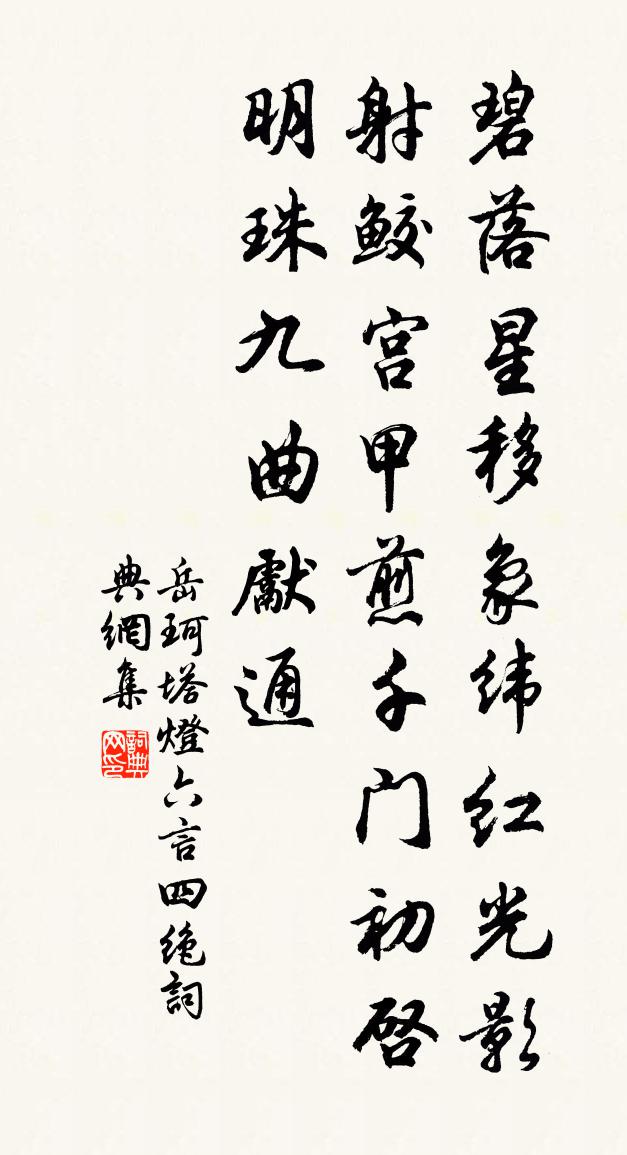 碧落星移象纬红光影
射鲛宫甲煎千门初启
明珠九曲獻通
岳珂塔燈六言四绝詞
典網集
詞典网印